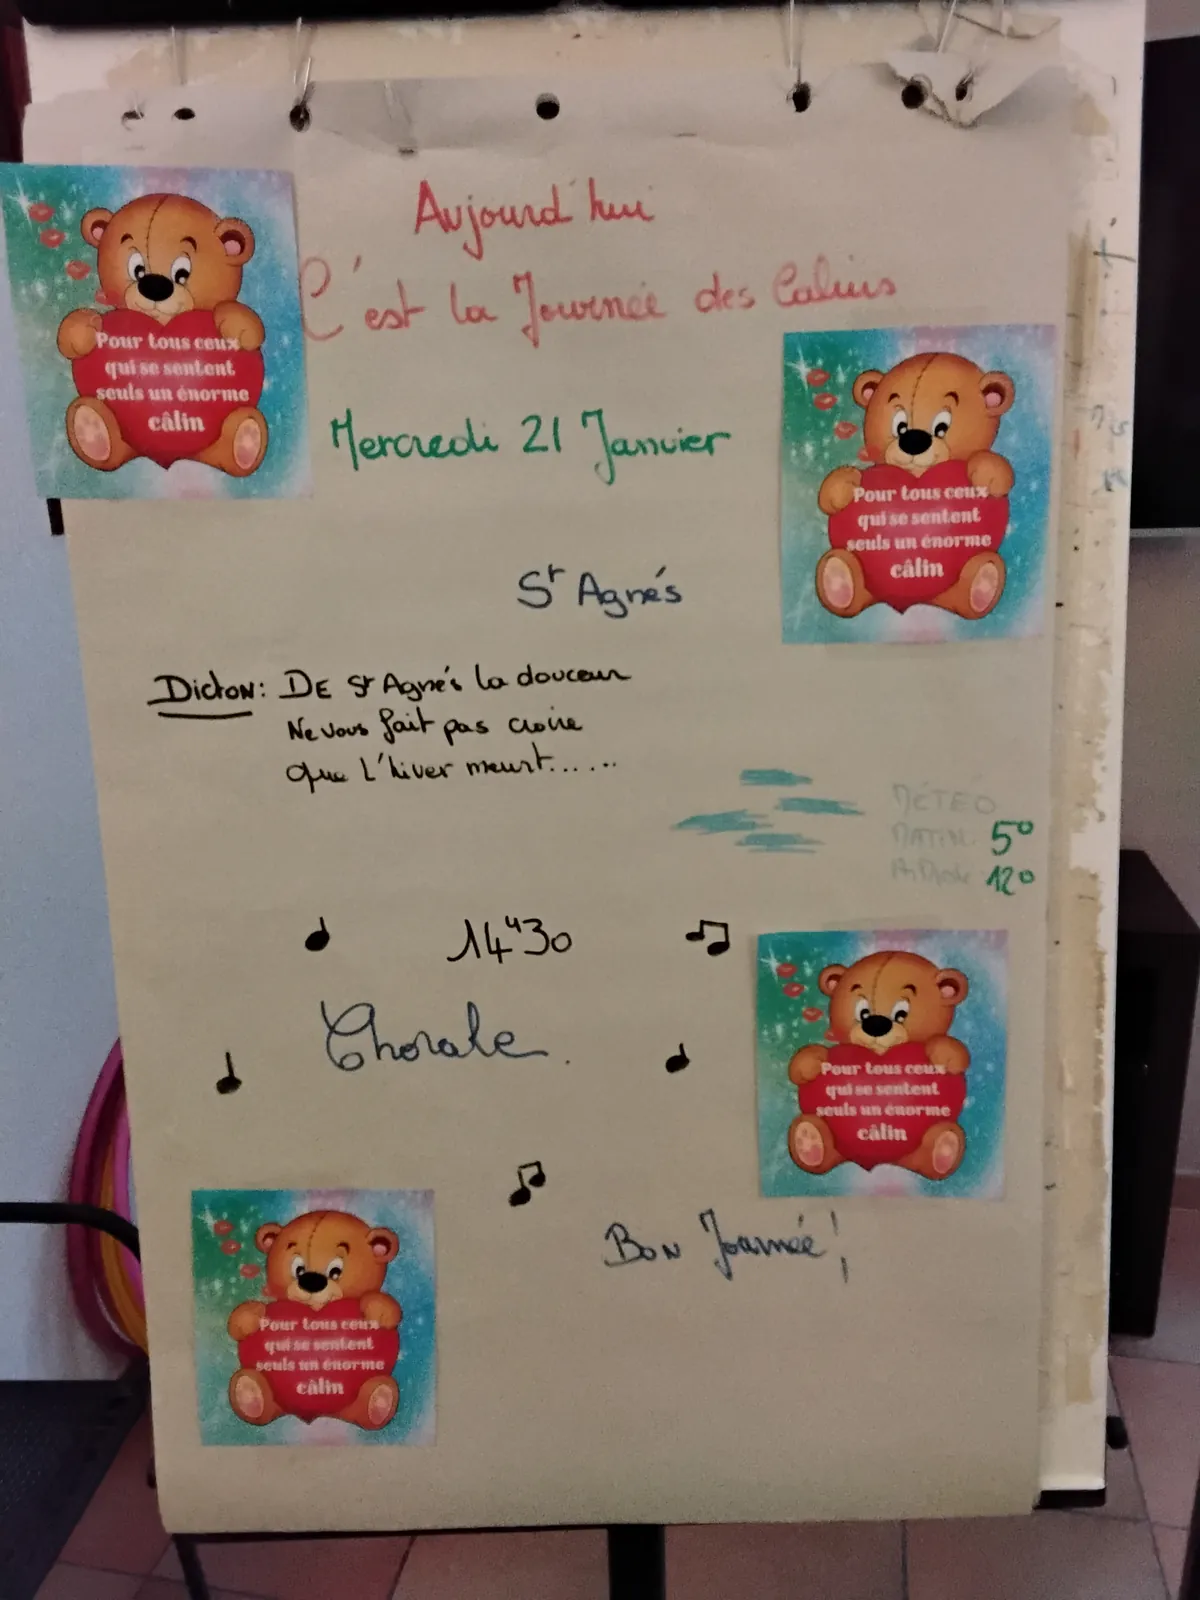 Aujourd'hui
C'est la Journée des Calins
Pour tous ceux
qui se sentent
seuls un énorme
câlin
Mercredi 21 Janvier
Pour tous ceux
qui se sentent
seuls un énorme
câlin
St Agnés
Dicton: DE St Agnés la douceur
Ne vous fait pas croire
que L'hiver meurt......
MÉTÉO
MATIN 5°
12°
14h30
Chorale.
Pour tous ceux
qui se sentent
seuls un énorme
câlin
Bon Journée!
Pour tous ceux
qui se sentent
seuls un énorme
câlin